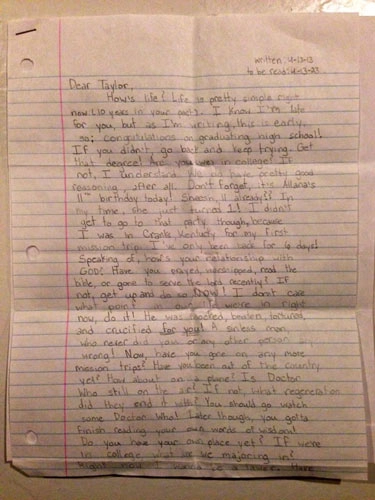 written: 4-13-13
to be read: 4-13-23
Dear Taylor,
How's life? Life is pretty simple right
now (10 years in your past). I know I'm late
for you, but as I'm writing, this is early,
so; congratulations on graduating high school!
If you didn't, go back and keep trying. Get
that dearee! Are you in college? If
not, I understand. had pretty good
reasoning, after all. Don't forget, it's Allana's
11th birthday today! Sheesh, 11 already?? In
my time, she just turned 1! I didn't
get to go to that party though, because
I was in Kentucky for my first
mission trip. I've only been back for 6 days!
Speaking of, how's your relationship with
GOD? Have you prayed, worshipped, read the
bible, or gone to serve the Lord recently? If
not, get up and do so NOW! I don't care
what point in our life we're at right
now, do it! He was mocked, beaten, tortured,
and crucified for you! A sinless man,
who never did you or any other person any
wrong! Now, have you gone on any more
mission trips? Have you been out of the country
yet? How about on a plane? Is Doctor
Who still on the air? If not, what regeneration
did they end it with? You should go watch
some Doctor Who! Later though, you gotta
finish reading your own words of wisdom!
Do you have your own place yet? If we're
in college what are we majoring in?
Right now I wanna be a Have